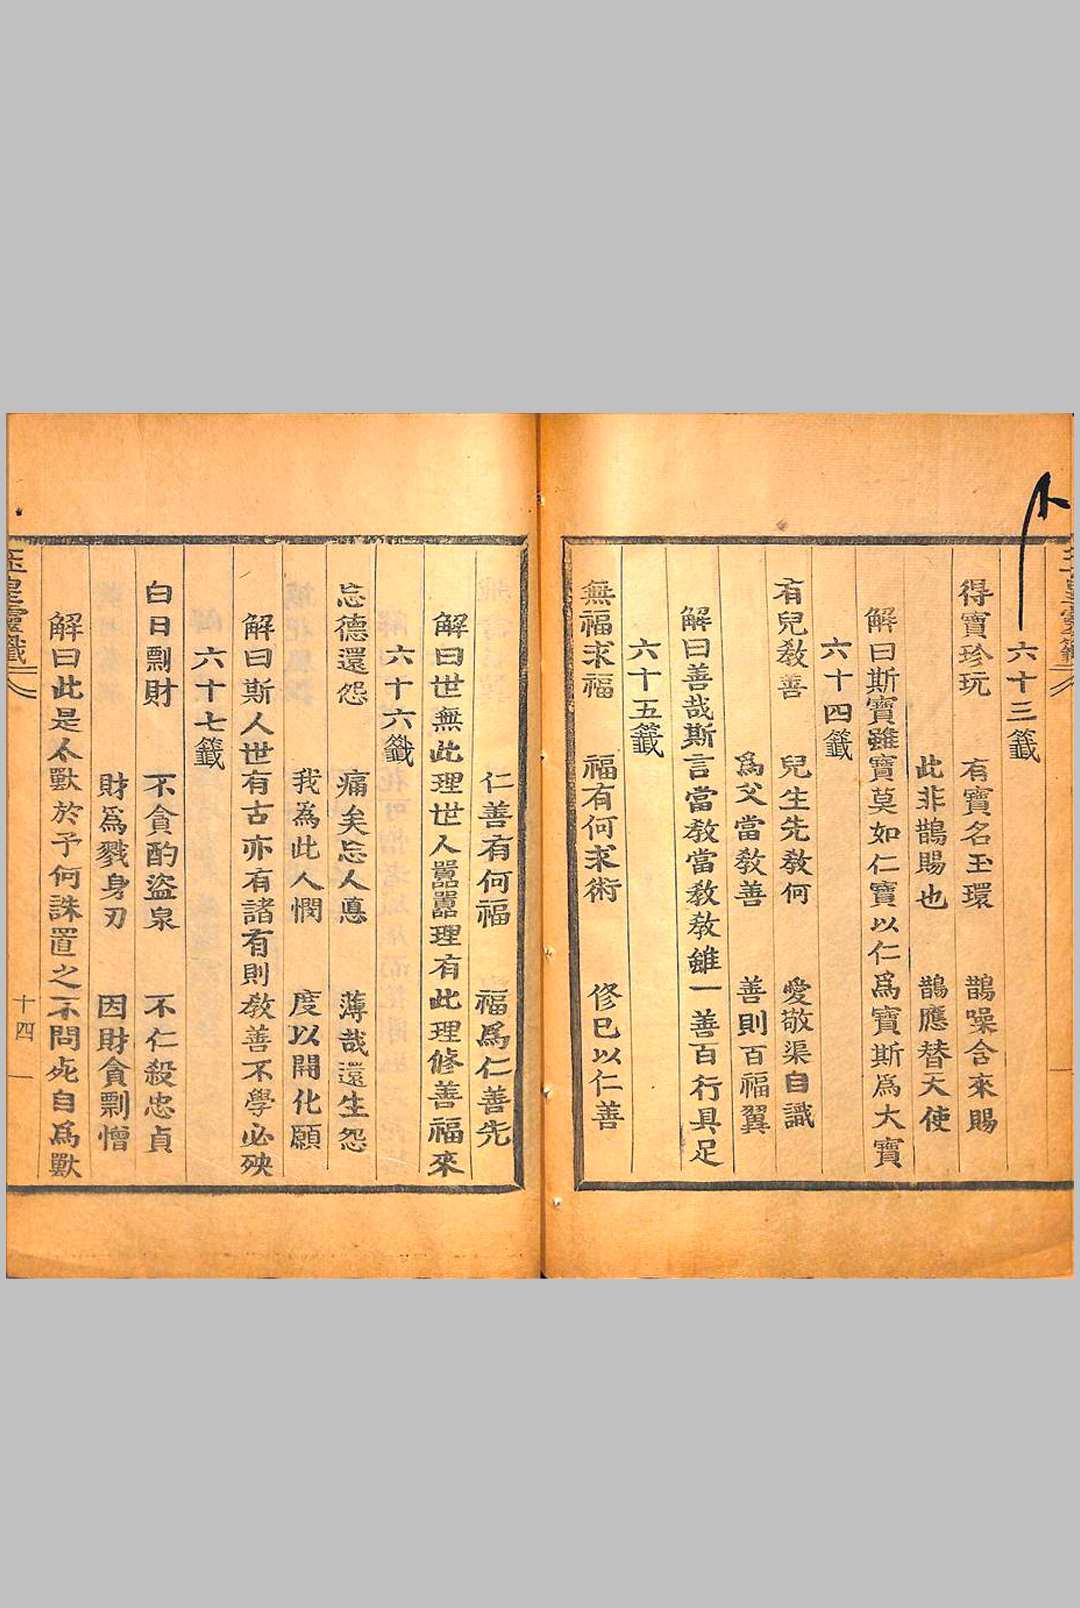 六十三籤
得寶珍玩　有寶名玉環　鵲噪含來賜
此非鵲賜也　鵲應替天使
解曰斯寶雖寶莫如仁寶以仁爲寶斯爲大寶
六十四籤
有兒敎善　兒生先敎何　愛敬渠自識
爲父當敎善　善則百福翼
解曰善哉斯言當敎當敎敎雖一善百行具足
六十五籤
無福求福　福有何求術　修己以仁善
仁善有何福　福爲仁善先
解曰世無此理世人嚚嚚理有此理修善福來
六十六籤
忘德還怨　痛矣忘人悳　薄哉還生怨
我為此人憫　度以開化願
解曰斯人世有古亦有諸有則敎善不學必殃
六十七籤
白日剽財　不貪酌盜泉　不仁殺忠貞
財爲戮身刃　因財貪剽憎
解曰此是仌獸於予何誅置之不問死自爲獸
玉皇靈籤
十四